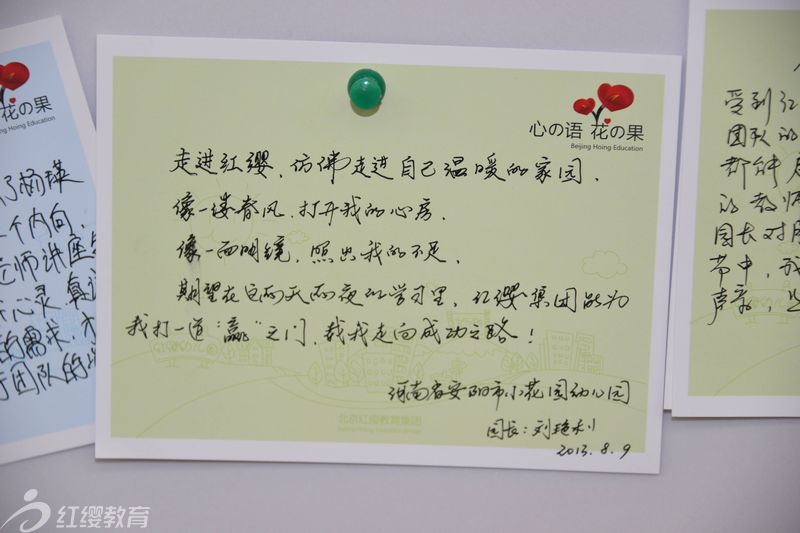 心の语 花の果
Beijing Hoing Education
走进红缨，仿佛走进自己温暖的家园，
像一缕春风，打开我的心房，
像一面明镜，照出我的不足，
期望在这两天两夜的学习里，红缨集团能为
我打一道“赢”之门，载我走向成功之路！
河南省安阳市小花园幼儿园
园长：刘艳利
2013.8.9
北京红缨教育集团
花の果
Beijing Hoing Education
了杨瑛
个内向，
老师讲座
心灵，真
的需求，
团队的
受到红
团队的
都能
的教师
园长对
节中，我
声音，
红缨教育